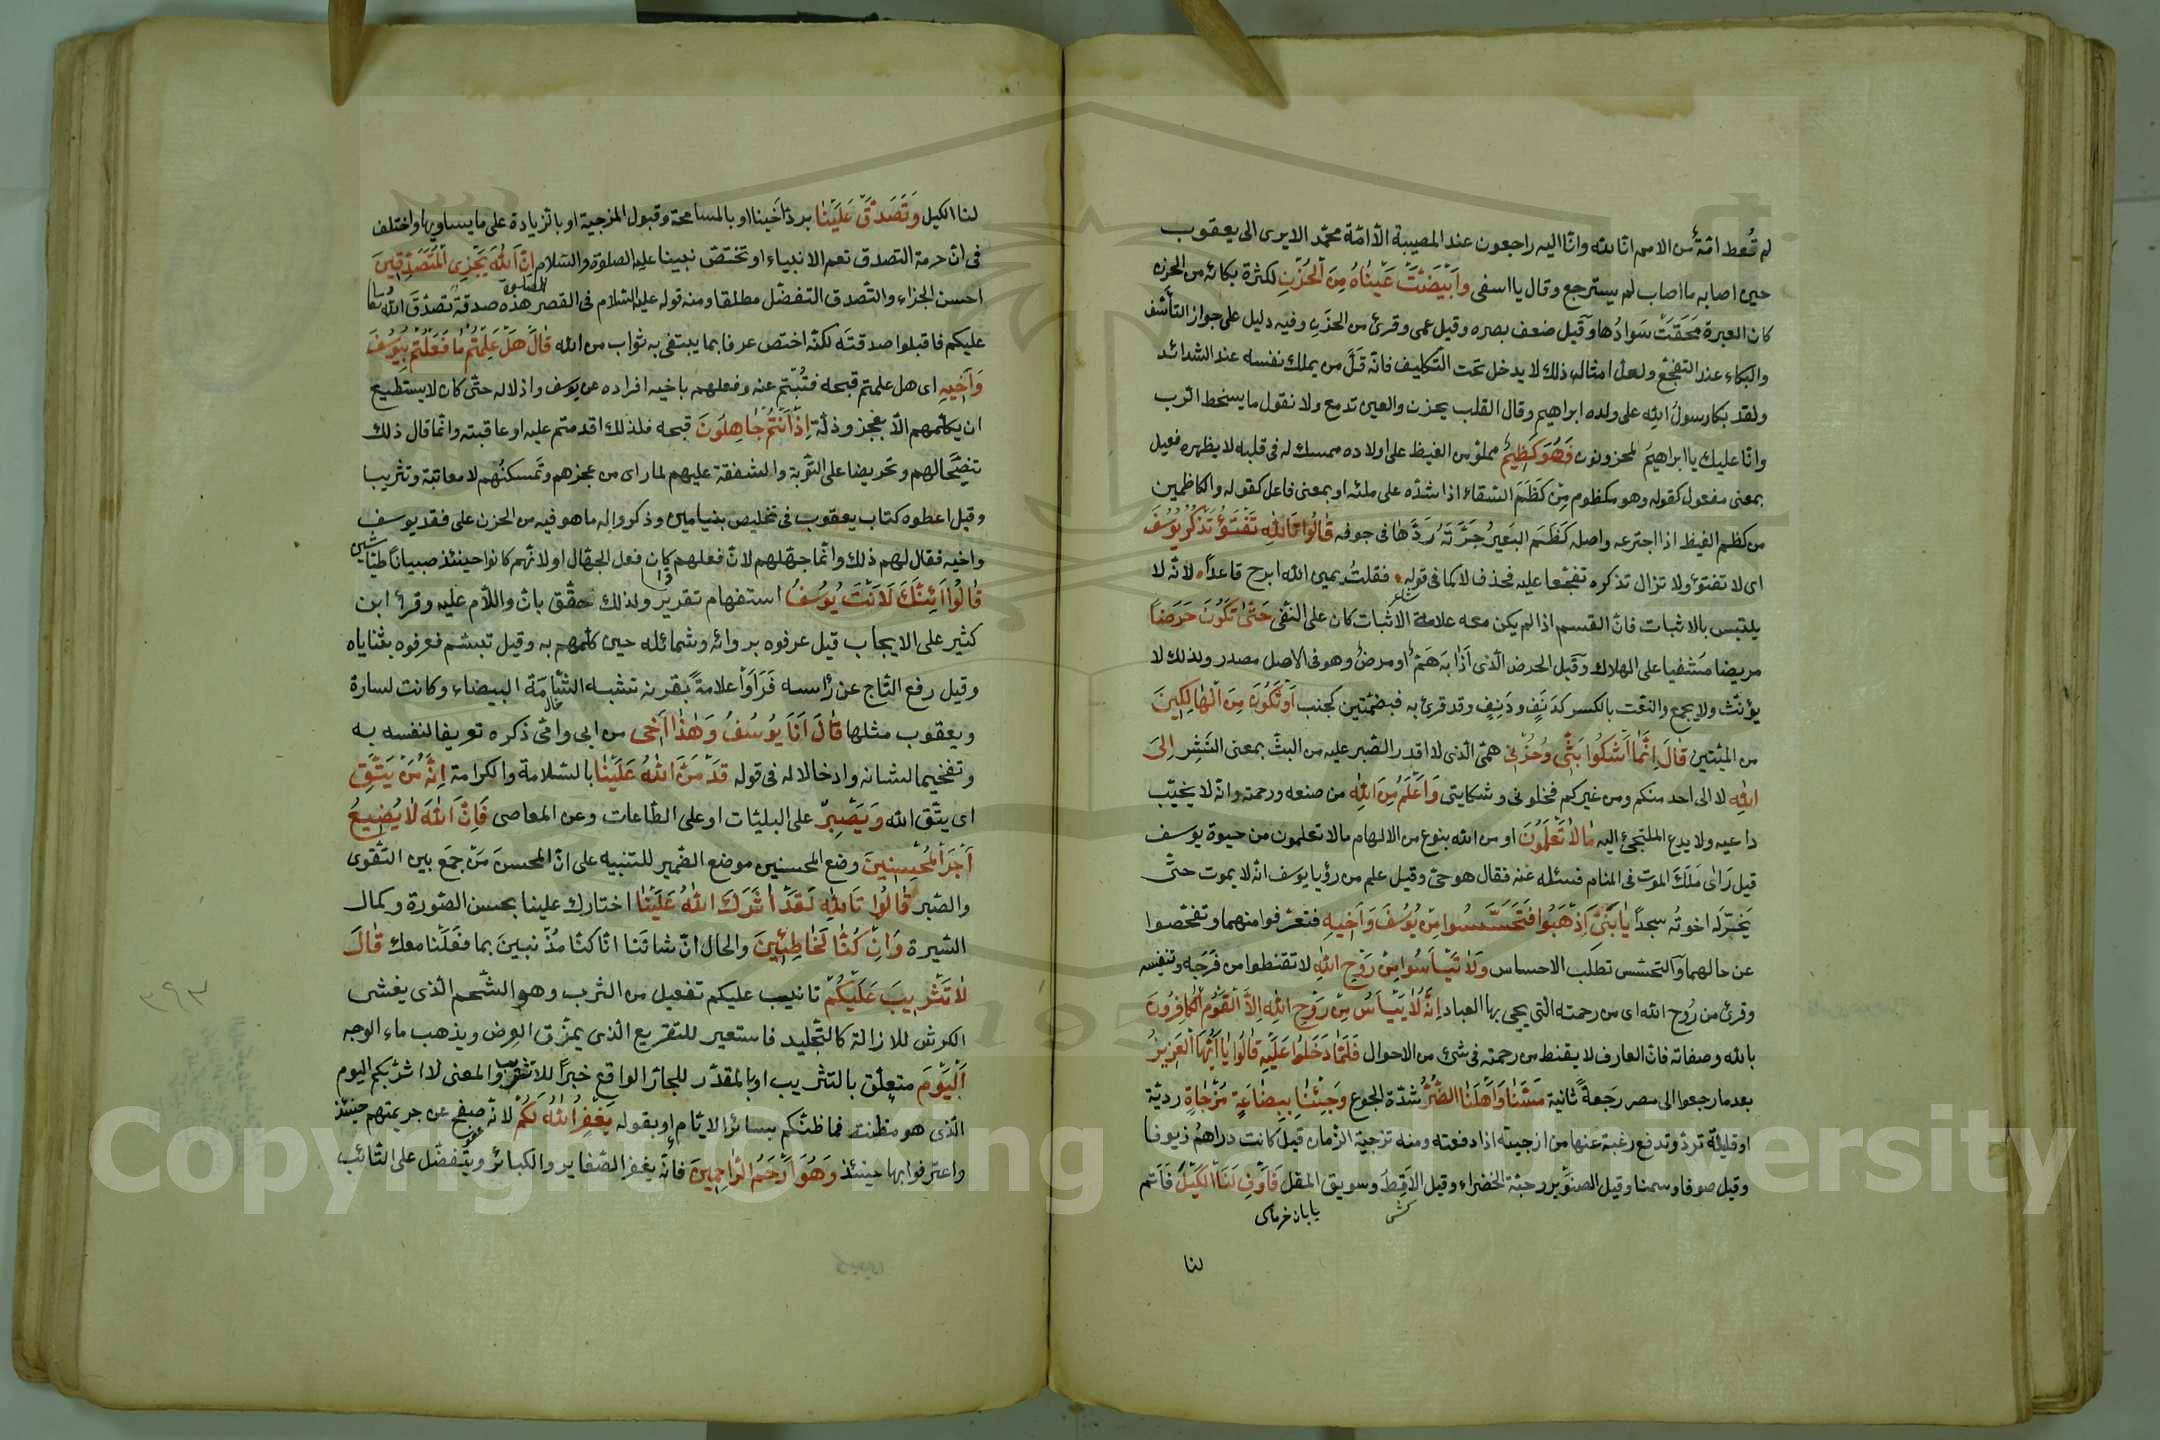 لم تُعط امّة من الامم انا لله وانا اليه راجعون عند المصيبة الا امّة محمّد الا يرى الى يعقوب
حين اصابه ما اصاب لم يسترجع وقال يا اسفى وَابْيَضَّتْ عَيْنَاهُ مِنَ الْحُزْنِ لكثرة بكائه من الحزن
كان العبرة مَحَقَتْ سَوادُها وقيل ضعف بصره وقيل عمى وقرئ من الحزَن وفيه دليل على جواز التأسّف
والبكاء عند التفجّع ولعلّ امثاله ذلك لا يدخل تحت التّكليف فانّه قَلَّ من يملك نفسه عند الشدائد
ولقد بكا رسولُ الله على ولده ابراهيم وقال القلب يحزن والعين تدمع ولا نقول ما يسخط الرّب
وانّا عليك يا ابراهيمُ لمحزونون فَهُوَ كَظِيمٌ مملوّ من الغيظ على اولاده ممسك له فى قلبه لا يظهره فعيل
بمعنى مفعول كقوله وهو مكظوم مِنْ كَظَمَ السّقاءَ اذا شدّه على ملئه او بمعنى فاعل كقوله والكاظمين
من كظم الغيظ اذا اجترعه واصله كَظَمَ البَعيرُ جَرَّتَهُ رَدَّهَا فى جوفه قَالُوا تَاللّٰهِ تَفْتَؤُ تَذْكُرُ يُوسُفَ
اى لا تفتؤ ولا تزال تذكره تفجّعا عليه فحذف لا كما فى قوله فقلتُ يمين الله ابرح قاعداً لانّه لا
شاعر
يلتبس بالاثبات فانّ القسم اذا لم يكن معه علامة الاثبات كان على النّفى حَتّٰى تَكُونَ حَرَضاً
مريضا مُشفيا على الهلاك وقيل الحرض الّذى اَذَابَه هَمٌّ او مرضٌ وهو فى الاصل مصدر ولذلك لا
يؤنث ولا يجمع والنّعت بالكسر كدَنَفٍ ودَنِفٍ وقد قرئ به فبضمّتين كجنب اَوْ تَكُونَ مِنَ الْهَالِكِينَ
من الميّتين قَالَ اِنَّمَا اَشْكُوا بَثِّى وَحُزْنِى همّى الّذى لا اقدر الصّبر عليه من البثّ بمعنى النَّشْر اِلَى
اللّٰهِ لا الى احد منكم ومن غيركم فخلونى وشكايتى وَاَعْلَمُ مِنَ اللّٰهِ من صنعه ورحمته وانّه لا يخيّب
داعيه ولا يدع الملتجئ اليه مَا لَا تَعْلَمُونَ او من الله بنوع من الالهام ما لا تعلمون من حيوة يوسف
قيل رَاى مَلَكَ الموت فى المنام فسئله عنه فقال هو حىّ وقيل علم من رؤيا يوسف انّه لا يموت حتّى
يَخرّ له اخوتُه سجداً يَا بَنِىَّ اذْهَبُوا فَتَحَسَّسُوا مِنْ يُوسُفَ وَاَخِيهِ فتعرّفوا منهما وتفحّصوا
عن حالهما والتحسّس تطلب الاحساس وَلَا تَيْاَسُوا مِنْ رَوْحِ اللّٰهِ لا تقنطوا من فَرَجه وتنفيسه
وقرئ من رُوح الله اى من رحمته الّتى يحيى بها العباد اِنَّهُ لَا يَيْاَسُ مِنْ رَوْحِ اللّٰهِ اِلَّا الْقَوْمُ الْكَافِرُونَ
بالله وصفاته فانّ العارف لا يقنط من رحمته فى شئ من الاحوال فَلَمَّا دَخَلُوا عَلَيْهِ قَالُوا يَا اَيُّهَا الْعَزِيزُ
بعد ما رجعوا الى مصر رَجعةً ثانية مَسَّنَا وَاَهْلَنَا الضُّرُّ شدّة الجوع وَجِئْنَا بِبِضَاعَةٍ مُزْجَاةٍ رديّة
او قليلة تردّ وتدفع رغبة عنها من ازجيته اذا دفعته ومنه تزجية الزّمان قيل كانت دراهمُ زيوفا
وقيل صوفا وسمنا وقيل الصنوبر وحبّة الخضراء وقيل الاَقِطَ وسويق المقل فَاَوْفِ لَنَا الْكَيْلَ فَاَتم
لنا
لنا الكيل وَتَصَدَّقْ عَلَيْنَا بردّ اَخينا او بالمسامحة وقبول المزجية او بالزيادة على ما يساويها واختلف
فى انّ حرمة التصدق تعم الانبياء او تختصّ نبينا عليه الصلوة والسّلام اِنَّ اللّٰهَ يَجْزِى الْمُتَصَدِّقِينَ
احسن الجزاء والتّصدق التفضّل مطلقا ومنه قوله عليه السّلام فى القصر هذه صدقةٌ تصدّق اللّٰهُ
عليكم فاقبلوا صدقتَه لكنّه اختص عرفا بما يبتغى به ثواب من الله قَالَ هَلْ عَلِمْتُمْ مَا فَعَلْتُمْ بِيُوسُفَ
وَاَخِيهِ اى هل علمتم قبحه فتُبتم عنه وفعلهم باخيه افراده عن يوسف واذلاله حتّى كان لا يستطيع
ان يكلّمهم الّا بعجز وذلّة اِذْ اَنْتُمْ جَاهِلُونَ قبحه فلذلك اقدمتم عليه او عاقبته وانّما قال ذلك
تنصّحا لهم وتحريضا على التّوبة والشفقة عليهم لما راى من عجزهم وتمسكنهُم لا معاتبة وتثريبا
وقيل اعطوه كتاب يعقوب فى تخليص بنيامين وذكروا له ما هو فيه من الحزن على فقد يوسف
واخيه فقال لهم ذلك وانّما جهّلهم لانّ فعلهم كان فعل الجهّال او لانّهم كانوا حينئذ صبيانا طيّاشين
قَالُوا اَئِنَّكَ لَاَنْتَ يُوسُفُ استفهام تقرير ولذلك حقّق بانّ واللّام عليه وقرأ ابن
كثير على الايجاب قيل عرفوه بروائه وشمائله حين كلّمهم به وقيل تبسّم فعرفوه بثناياه
وقيل رفع التّاج عن رأسه فَرَاَوْا علامةً بقرنه تشبه الشّامة البيضاء وكانت لسارة
ويعقوب مثلها قَالَ اَنَا يُوسُفُ وَهٰذَا اَخِى من ابى وامّى ذكره تعريفا لنفسه به
وتفخيما لشانه وادخالا له فى قوله قَدْ مَنَّ اللّٰهُ عَلَيْنَا بالسّلامة والكرامة اِنَّهُ مَنْ يَتَّقِ
اى يتّق الله وَيَصْبِرْ على البليّات او على الطّاعات وعن المعاصى فَاِنَّ اللّٰهَ لَا يُضِيعُ
اَجْرَ الْمُحْسِنِينَ وضع المحسنين موضع الضّمير للتنبيه على انّ المحسن مَنْ جمَع بين التّقوى
والصّبر قَالُوا تَاللّٰهِ لَقَدْ اٰثَرَكَ اللّٰهُ عَلَيْنَا اختارك علينا بحسن الصّورة وكمال
السّيرة وَاِنْ كُنَّا لَخَاطِئِينَ والحال انّ شانَنا انّا كنّا مُذْنبينَ بما فعَلْنا معك قَالَ
لَا تَثْرِيبَ عَلَيْكُمْ تانيب عليكم تفعيل من الثرب وهو الشّحم الّذى يغشى
الكرش للازالة كالتّجليد فاستعير للتقريع الّذى يمزّق العِرض ويذهب ماء الوجه
اَلْيَوْمَ متعلّق بالتثريب او بالمقدّر للجار الواقع خبراً للاتثريب والمعنى لا اثرّبكم اليوم
الّذى هو مظنّته فما ظنّكم بسائر الايّام او بقوله يَغْفِرُ اللّٰهُ لَكُمْ لانّه صفح عن جريمتهم حينئذ
واعترفوا بها حينئذ وَهُوَ اَرْحَمُ الرَّاحِمِينَ فانّه يغفر الصّغاير والكبائر ويتفضّل على التّائب
٣٩٣
Copyright © King Saud University
195